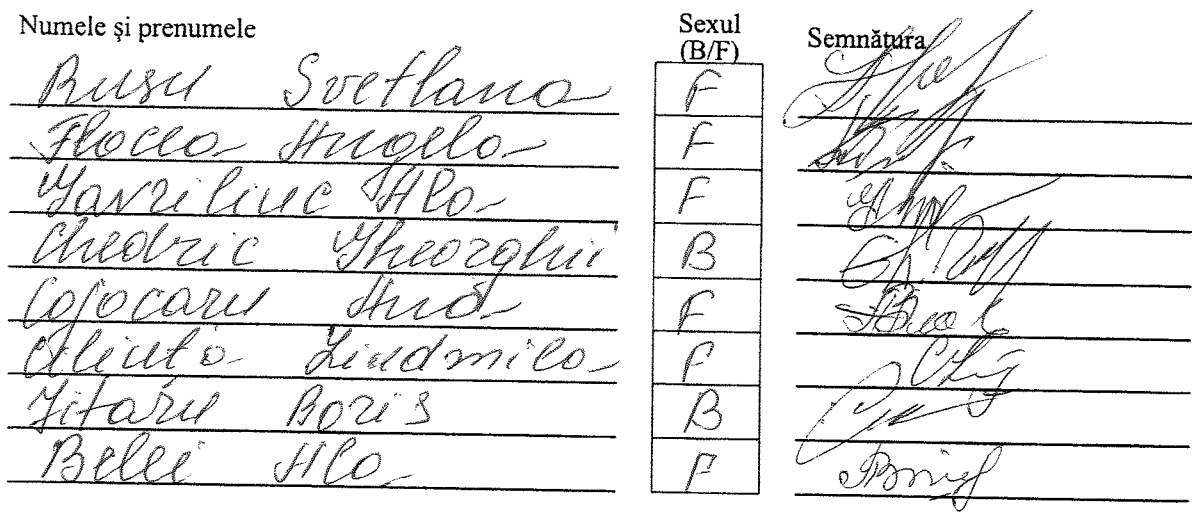 Numele și prenumele Sexul (B/F) Semnătura
Rusu Svetlana F
Flocea Angela F
Gavriliuc Ala F
Chedric Gheorghii B
Cojocaru Ana F
Liudmila F
Jitaru Boris B
Belei Ala F